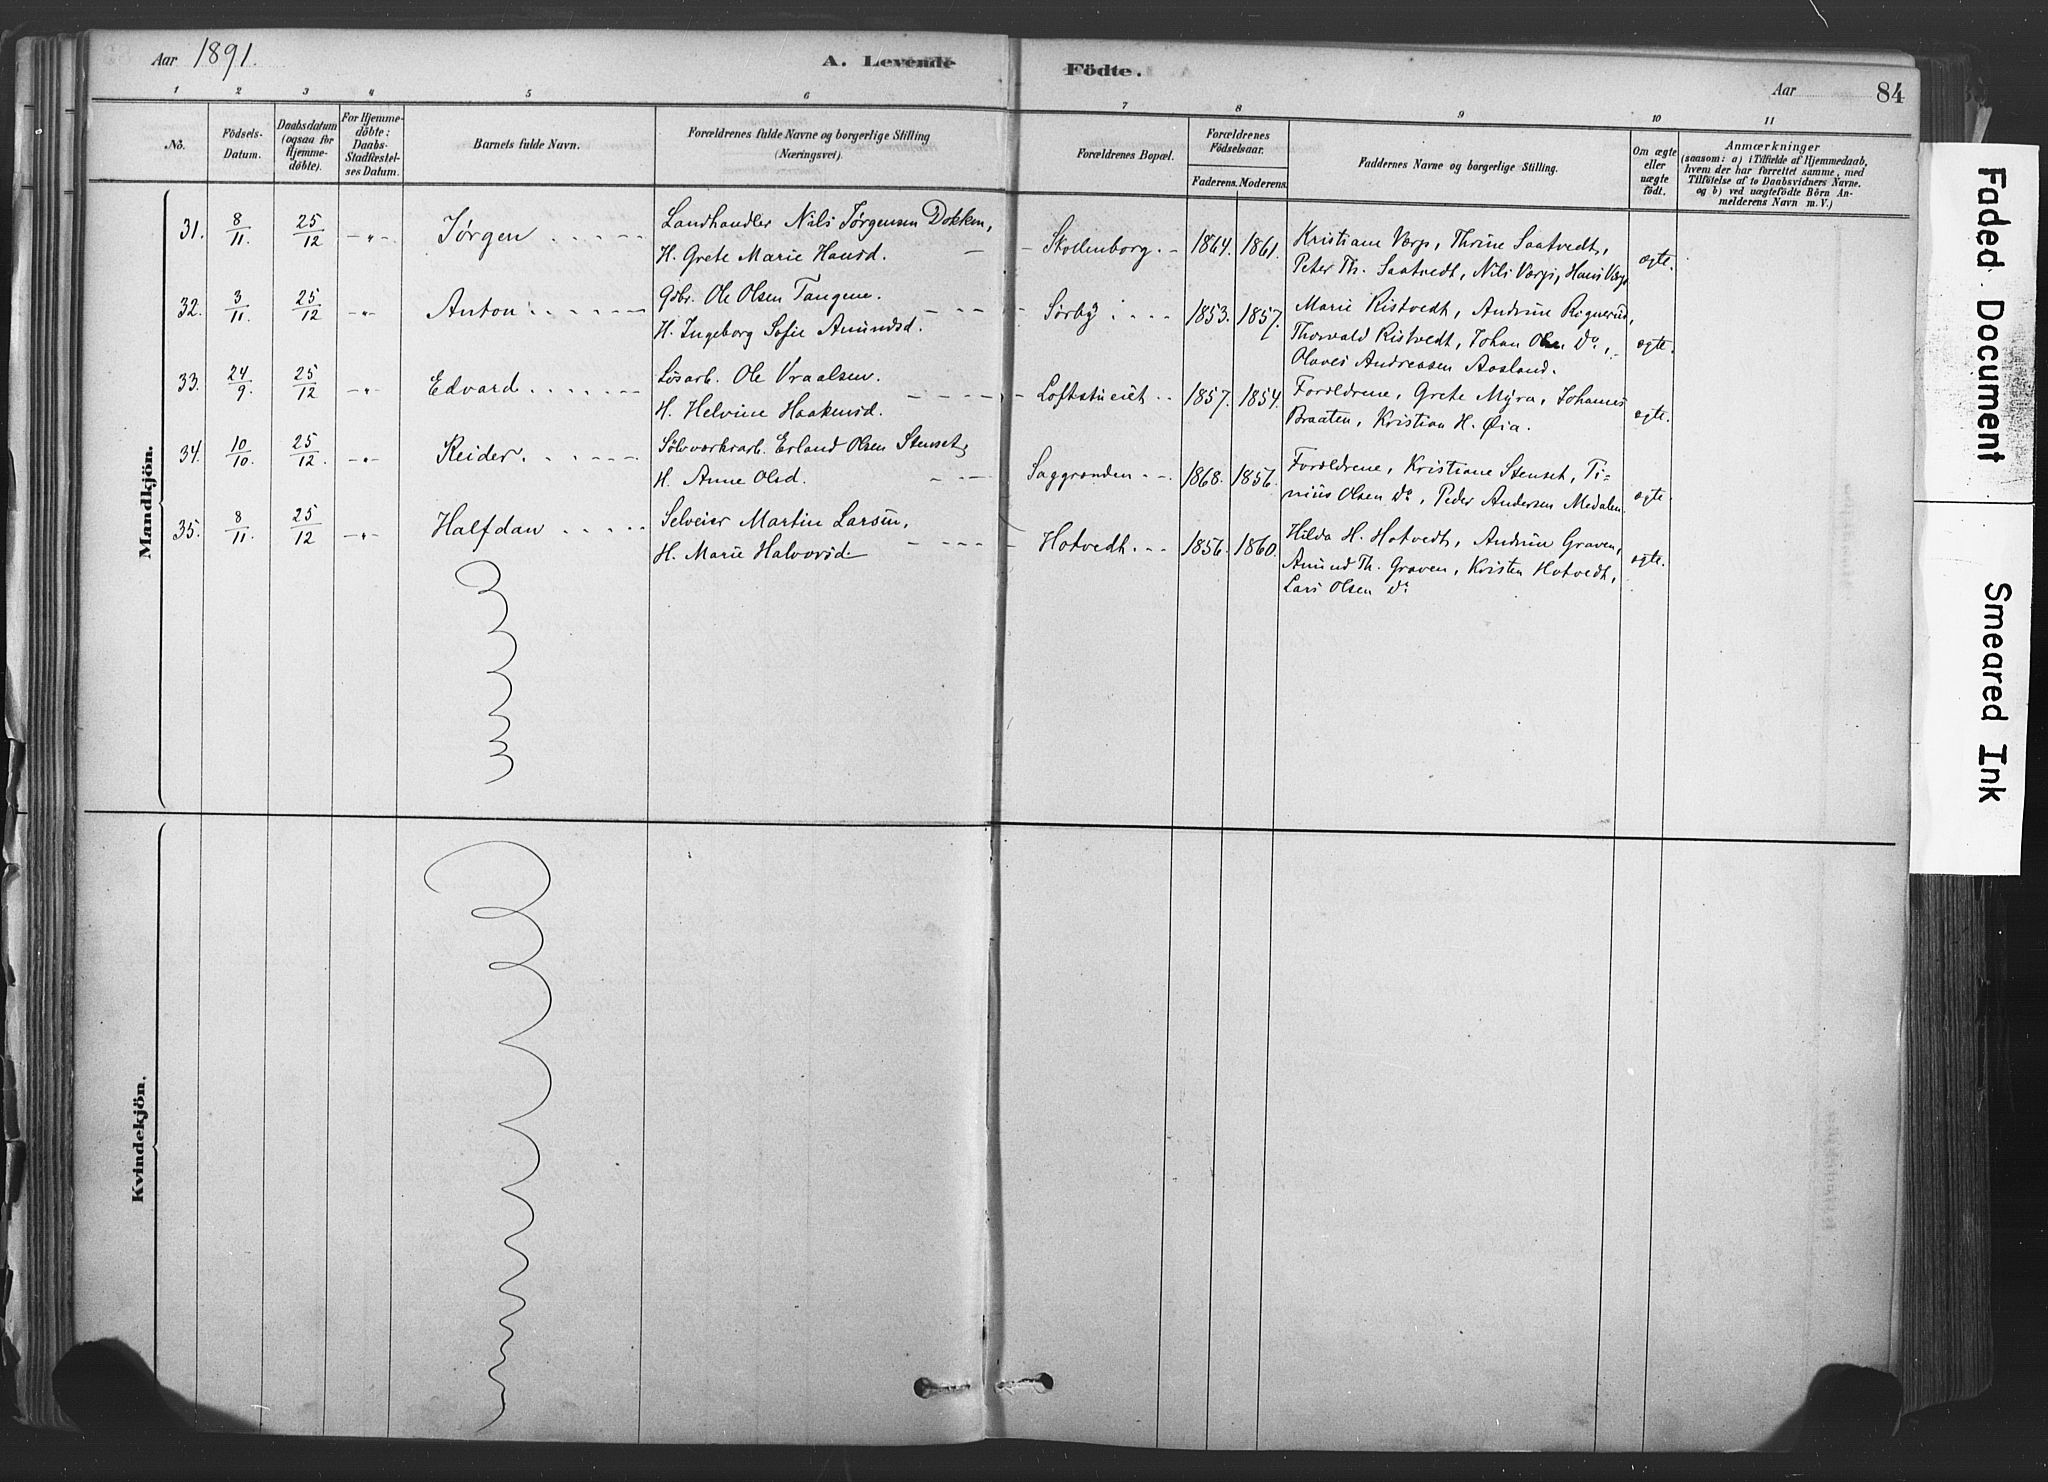 Aar 1891.
A. Levende Födte.
Aar
84
1 2 3 4 5 6 7 8 9 10 11
No.
Födsels-
Datum.
Daabsdatum
(ogsaa for
Hjemme-
döbte).
For Hjemme-
döbte:
Daabs-
Stadfæstel-
ses Datum.
Barnets fulde Navn.
Forældrenes fulde Navne og borgerlige Stilling
(Næringsvei).
Forældrenes Bopæl.
Forældrenes
Födselsaar.
Faderens. Moderens.
Faddernes Navne og borgerlige Stilling.
Om ægte
eller
uægte
födt.
Anmærkninger
(saasom: a) i Tilfælde af Hjemmedaab,
hvem der har forrettet samme, med
Tilföielse af to Daabsvidners Navne.
og b) ved uægtefödte Börn An-
melderens Navn m. V.)
Mandkjön.
31. 8/11. 25/12 -"- Jørgen
Landhandler Nils Jørgensen Dokken,
H. Grete Marie Hansd.
Skollenborg. 1864. 1861.
Kristiane Værp, Thrine Saatvedt,
Peter Th. Saatvedt, Nils Værp, Hans Værp
ægte.
32. 3/11. 25/12 -"- Anton
Gdbr. Ole Olsen Tangene.
H. Ingeborg Sofie Amundsd.
Sørby 1853. 1857.
Marie Ristvedt, Andrine Rignerud,
Thorvald Ristvedt, Johan Olsen Do,
Olaves Andreassen Aasland.
ægte.
33. 24/9. 25/12 -"- Edvard
Løsarb. Ole Vraalsen.
H. Helvine Haakensd.
Loftstueiet 1857. 1854.
Forældrene, Grete Myra, Johannes
Braaten, Kristian H. Øia.
ægte.
34. 10/10. 25/12. -"- Reider.
Sølvværksarb. Erland Olsen Stenset,
H. Anne Olsd.
Saggrenden 1868. 1856.
Forældrene, Kristiane Stenset, Ti-
nius Olsen Do, Peder Andersen Medalen.
ægte.
35. 8/11. 25/12 -"- Halfdan
Selveier Martin Larsen,
H. Marie Halvorsd.
Hotvedt. 1856. 1860.
Hilda H. Hotvedt, Andrine Graven,
Amund Th. Graven, Kristen Hotvedt,
Lars Olsen Do
ægte.
Kvindekjön.
Faded Document
Smeared Ink